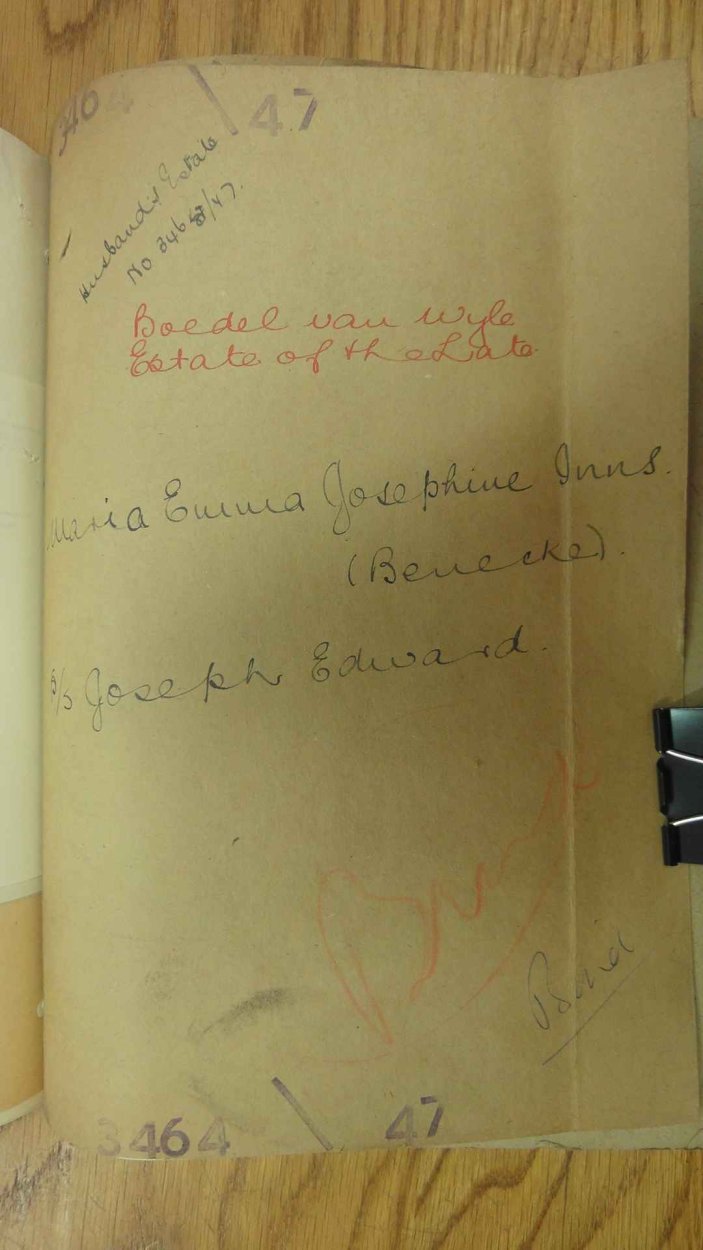 3464 \ 47
Husband's Estate
No 3463/47.
Boedel van Wyle
Estate of the Late
Maria Emma Josephine Inns.
(Benecke).
s/s Joseph Edward.
3464 \ 47